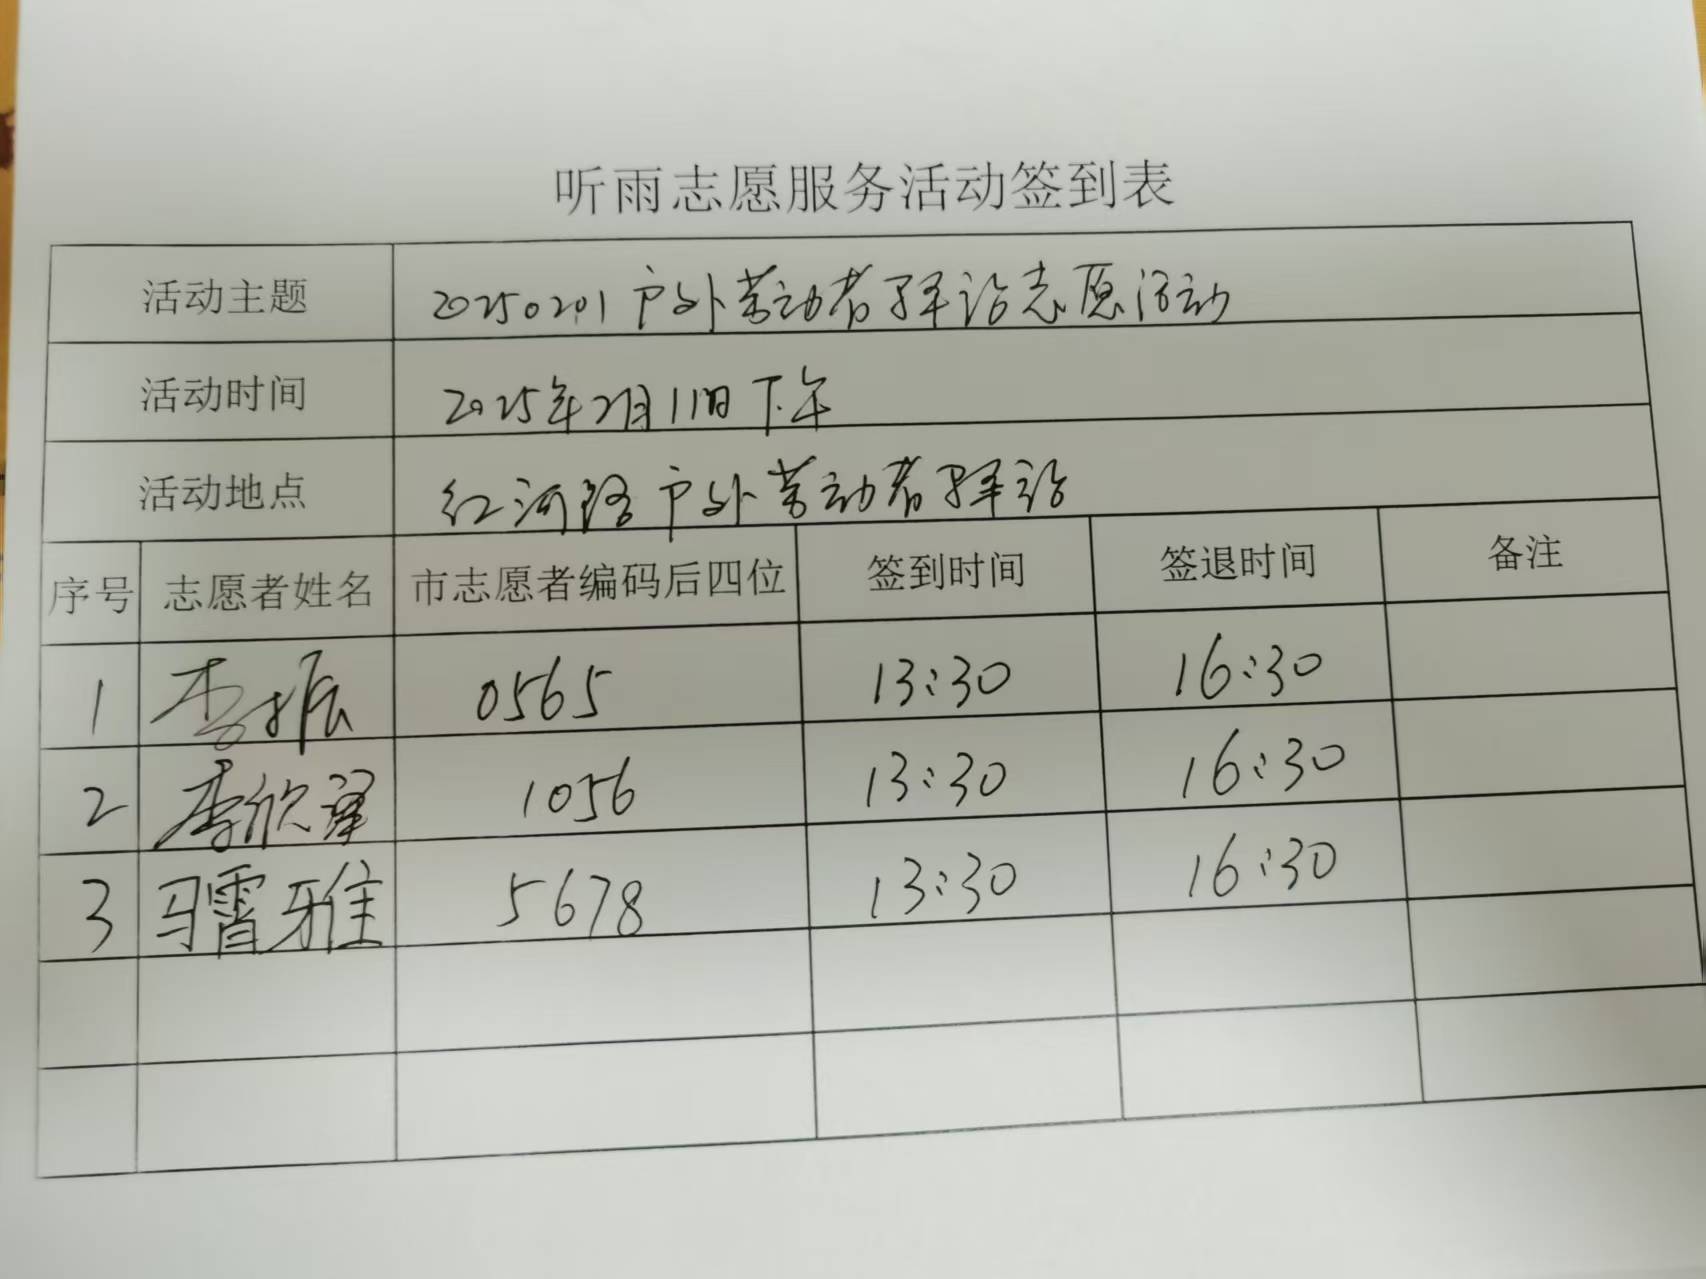 听雨志愿服务活动签到表
活动主题 20250201户外劳动者驿站志愿活动
活动时间 2025年2月1日下午
活动地点 红河路户外劳动者驿站
序号 志愿者姓名 市志愿者编码后四位 签到时间 签退时间 备注
1 李振 0565 13:30 16:30
2 李欣 1056 13:30 16:30
3 马霄雅 5678 13:30 16:30